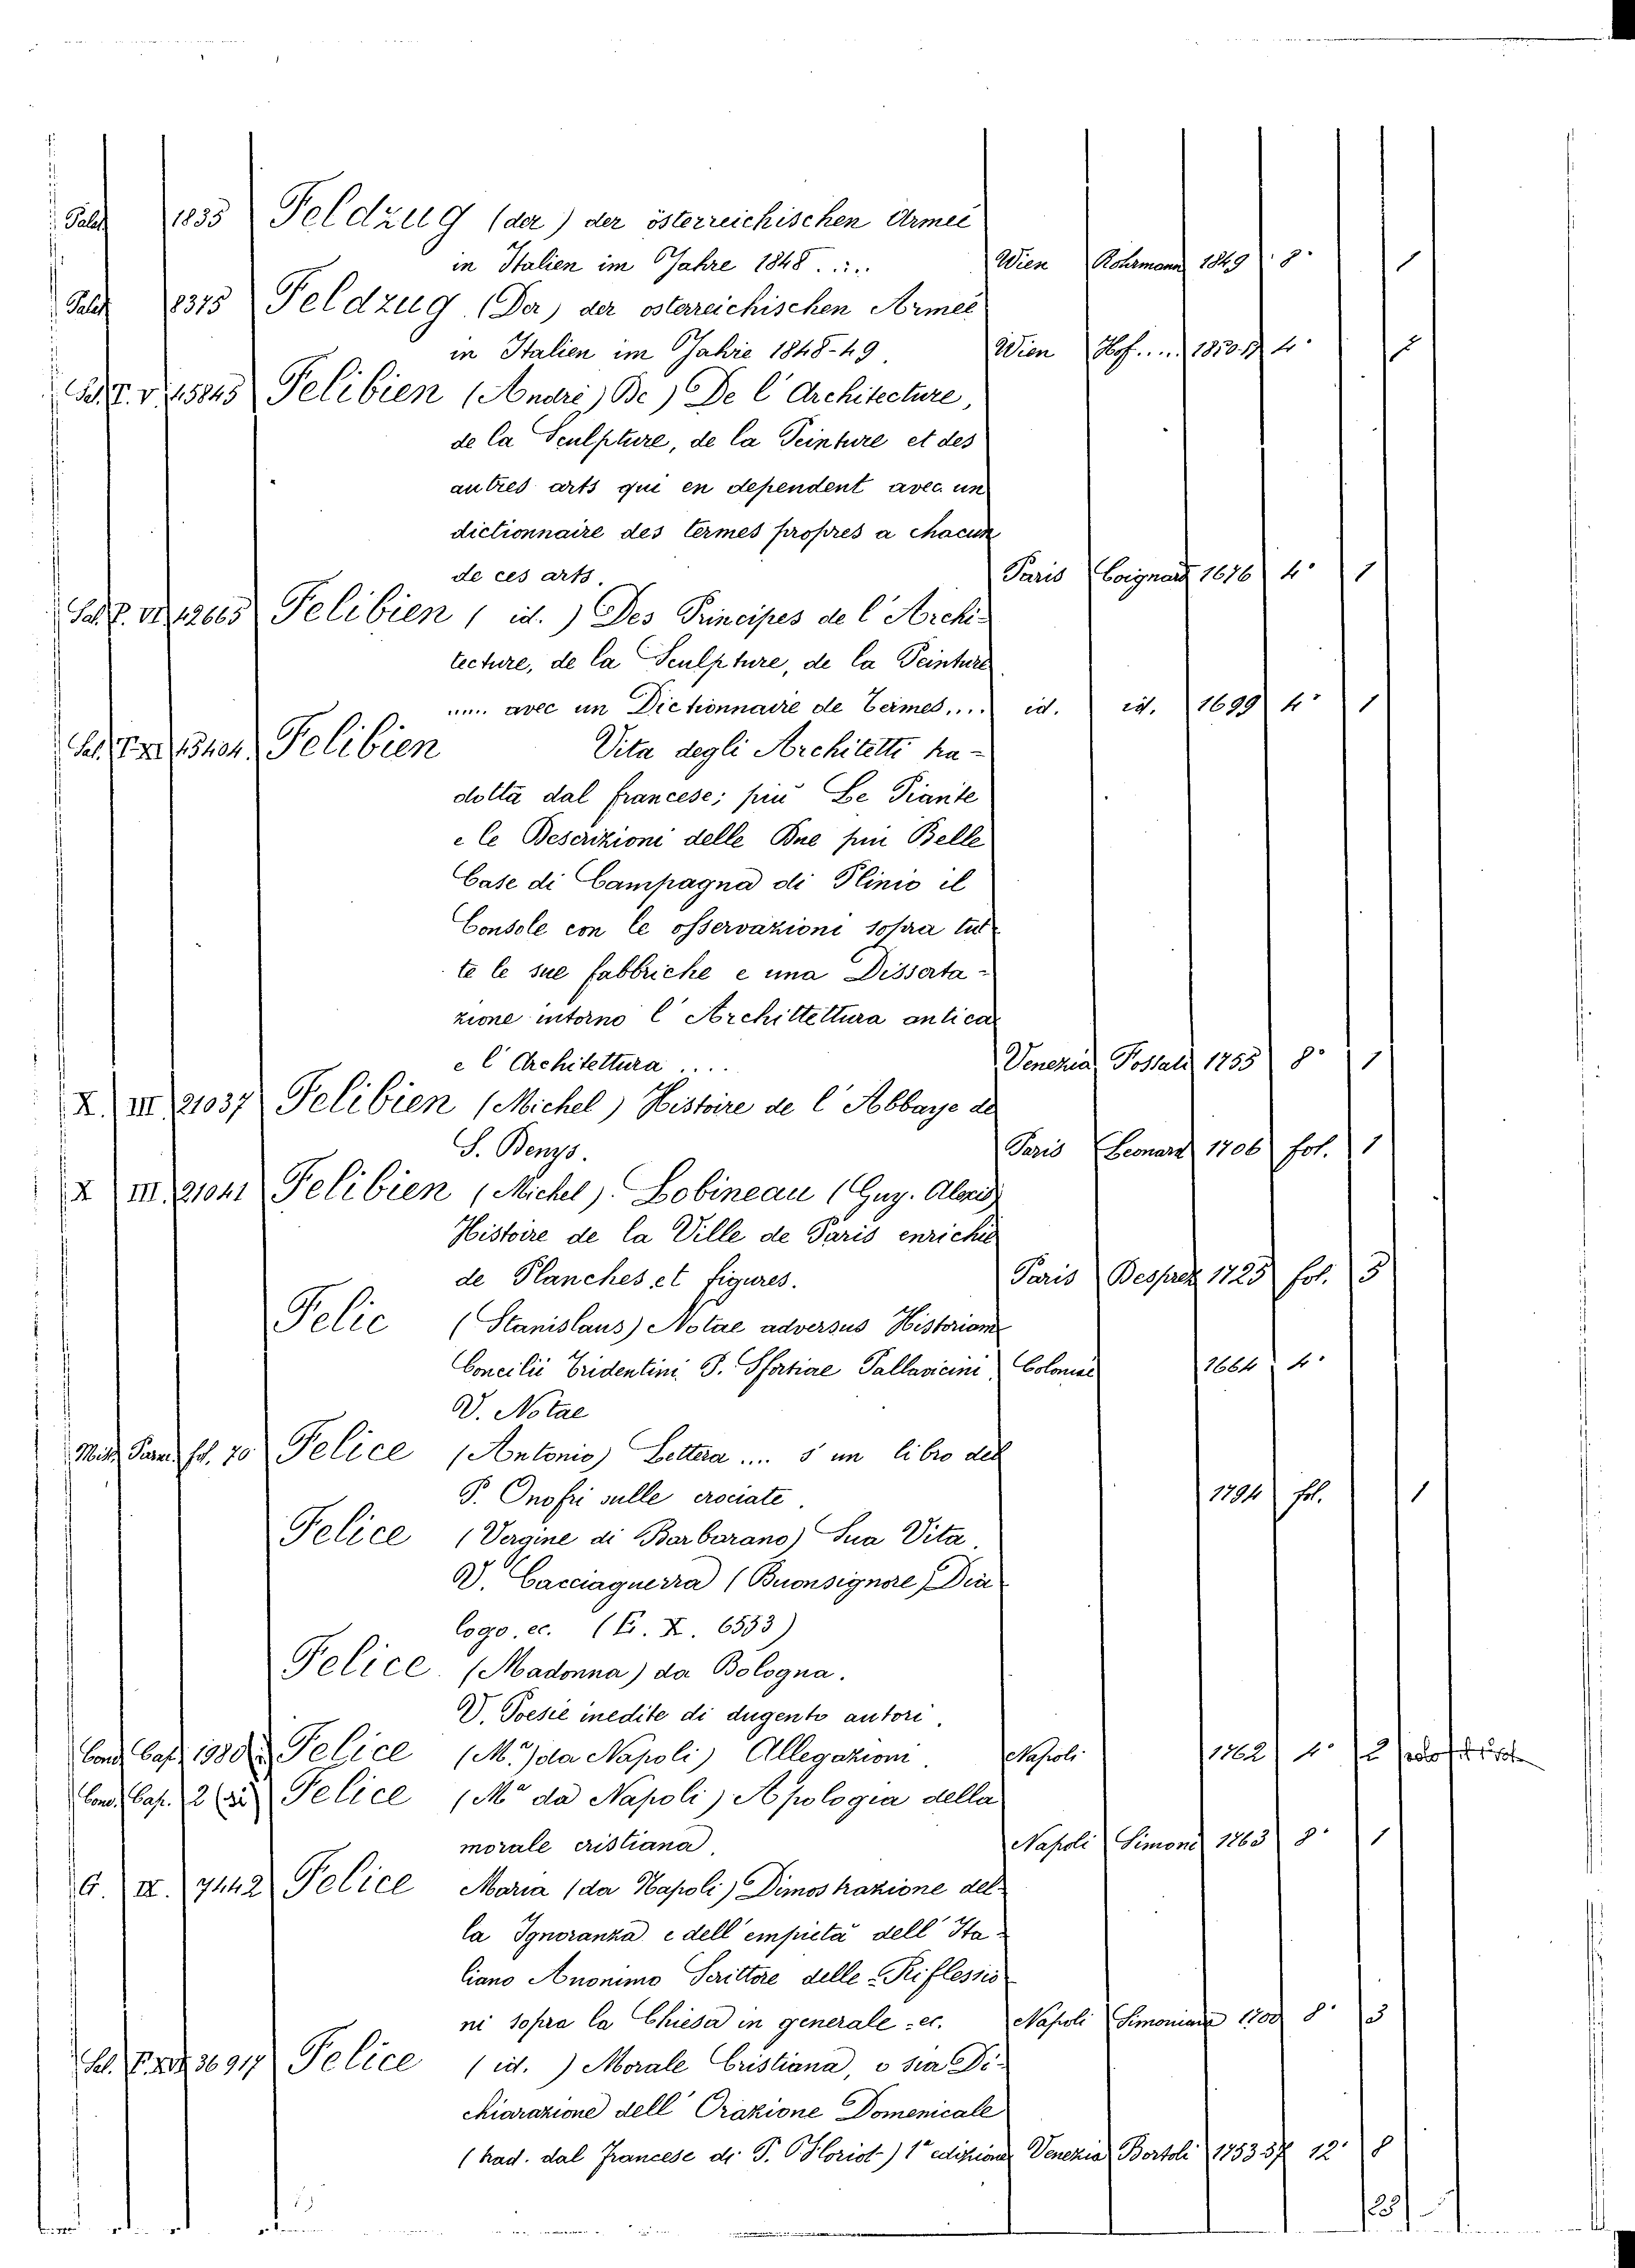 1835 Feldzug (der) der österreichischen Armee
in Italien im Jahre 1848 . . . . Wien Rohrmann 1849 8° 1
8375 Feldzug (Der) der österreichischen Armee
in Italien im Jahre 1848-49. Wien Hof..... 1850-51 4° 2
15845 Felibien (André) De) De l'Architecture,
de la Sculpture, de la Peinture et des
autres arts qui en dependent avec un
dictionnaire des termes propres a chacun
de ces arts. Paris Coignard 1676 4° 1
12665 Felibien (id.) Des Principes de l'Archi-
tecture, de la Sculpture, de la Peinture
.... avec un Dictionnaire de Termes.... id. id. 1699 4° 1
Felibien Vita degli Architetti tra-
dotta dal francese; più Le Piante
e le Descrizioni delle Due piu Belle
Case di Campagna di Plinio il
Console con le osservazioni sopra tut-
te le sue fabbriche e una Disserta-
zione intorno l'Archittettura antica
e l'Architettura .... Venezia 1755 8° 1
X. III 21037 Felibien (Michel) Histoire de l'Abbaye de
S. Denys. Paris Leonard 1706 fol. 1
X III. 21041 Felibien (Michel). Lobineau (Guy. Alexis)
Histoire de la Ville de Paris enrichie
de Planches et figures. Paris Desprez 1725 fol. 5
Felic (Stanislaus) Notae adversus Historiam
Concilii Tridentini P. Sfortiae Pallavicini Coloniae 1664 4°
V. Notae
fol. 70 Felice (Antonio) Lettera .... s un libro del
P. Onofri sulle crociate. 1794 fol. 1
Felice (Vergine di Barbarano) Sua Vita.
V. Cacciaguerra (Buonsignore) Dia-
logo. ec. (G. X. 6533)
Felice. (Madonna) da Bologna.
V. Poesie inedite di dugento autori.
Cond. Cap. 1980 Felice (M.ª) da Napoli) Allegazioni. Napoli 1762 4° 2
Cond. Cap. 2 Felice (Mª da Napoli) Apologia della
morale cristiana. Napoli Simone 1763 8° 1
G. II. 7442 Felice Maria (da Napoli) Dimostrazione del-
la Ignoranza e dell'empietà dell'Ita-
liano Anonimo Scrittore delle - Riflessio
ni sopra la Chiesa in generale - ec. Napoli Simoniana 8° 3
36917 Felice (id.) Morale Cristiana, o sia Di-
chiarazione dell'Orazione Domenicale
(trad. dal Francese di P. Floriot) 1ª edizione Venezia Bortoli 1753-57 12° 8